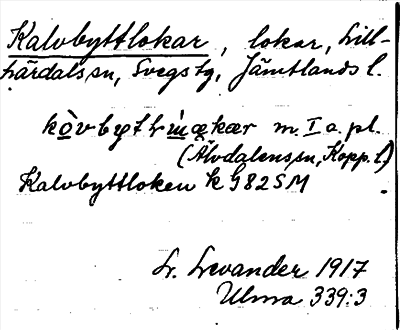 Kalvbyttlokar, lokar, Lill-
härdals sn, Svegs tg, Jämtlands l.
m. I a. pl.
(Älvdalens sn, Kopp. l.)
Kalvbyttloken k G82SM
L. Levander 1917
Ulma 339:3